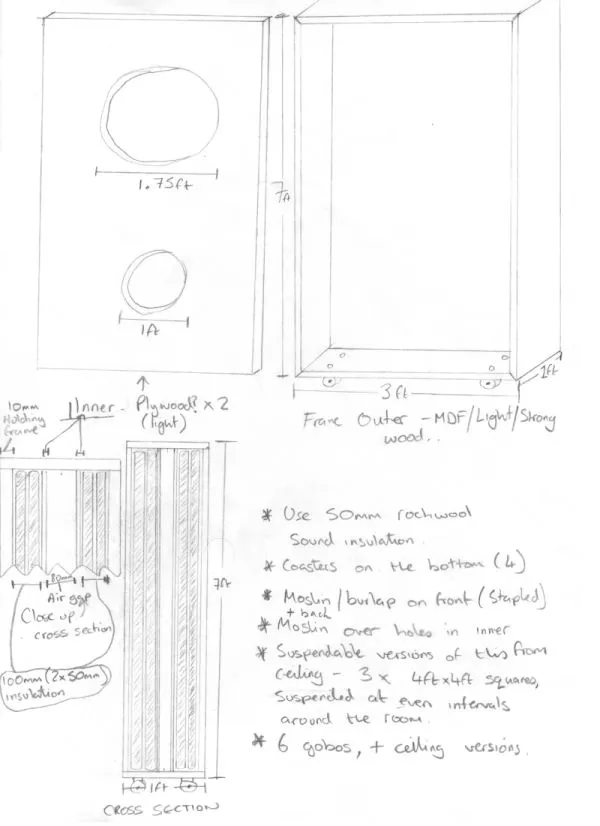 1.75ft
7ft
1ft
1ft
3ft
10mm
Holding
frame
Inner - Plywood? x 2
(light)
Frame Outer - MDF/Light/Strong
wood..
80mm
Air gap
Close up
cross section
100mm (2x50mm)
insulation
7ft
1ft
CROSS SECTION
* Use 50mm rockwool
Sound insulation.
* Coasters on the bottom (4)
* Moslin/burlap on front (Stapled)
+ back
* Moslin over holes in inner
* Suspendable versions of this from
Ceiling - 3 x 4ft x 4ft squares,
Suspended at even intervals
around the room.
* 6 gobos, + ceiling versions.